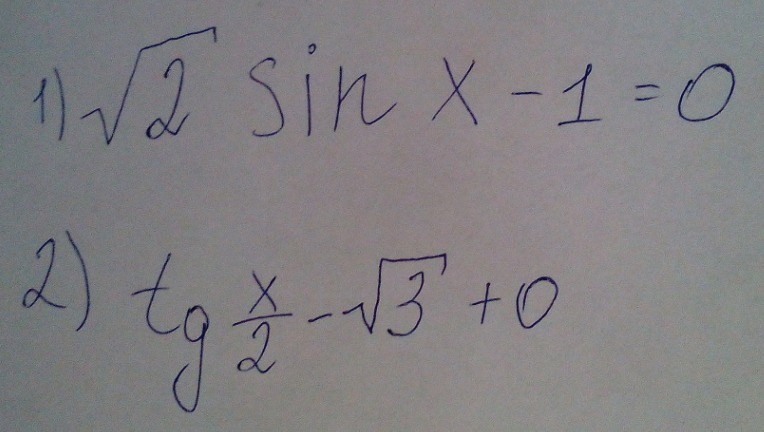 1) √2 sin x - 1 = 0
2) tg x/2 - √3 + 0